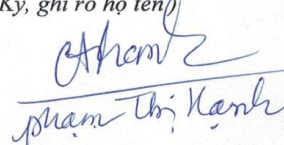 Ký, ghi rõ họ tên)
Phạm Thị Hạnh